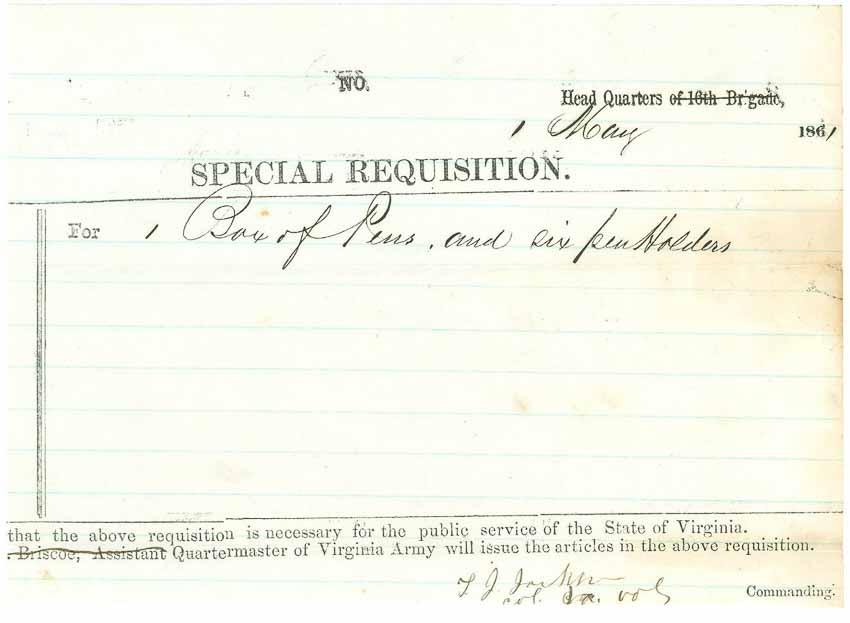 NO.
Head Quarters of 16th Brigade,
1 May 1861
SPECIAL REQUISITION.
For 1 Box of Pens, and six pen Holders
that the above requisition is necessary for the public service of the State of Virginia.
. Briscoe, Assistant Quartermaster of Virginia Army will issue the articles in the above requisition.
T. J. Jackson
Col. Va. Vols Commanding.